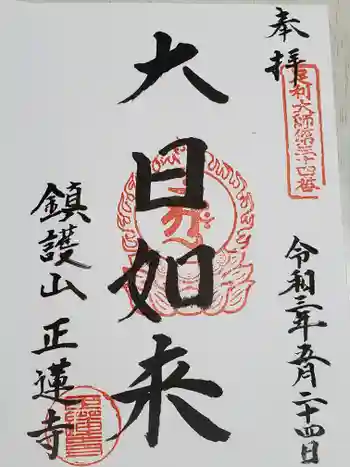 奉拝
足利大師第三十四番
令和三年五月二十四日
大日如来
鎮護山 正蓮寺